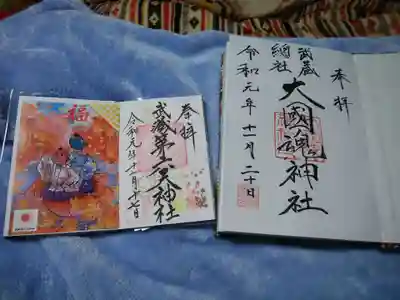 福
奉拝
武蔵第六天神社
令和元年十一月十七日
奉拝
武蔵
總社
大國魂神社
令和元年十一月二十日